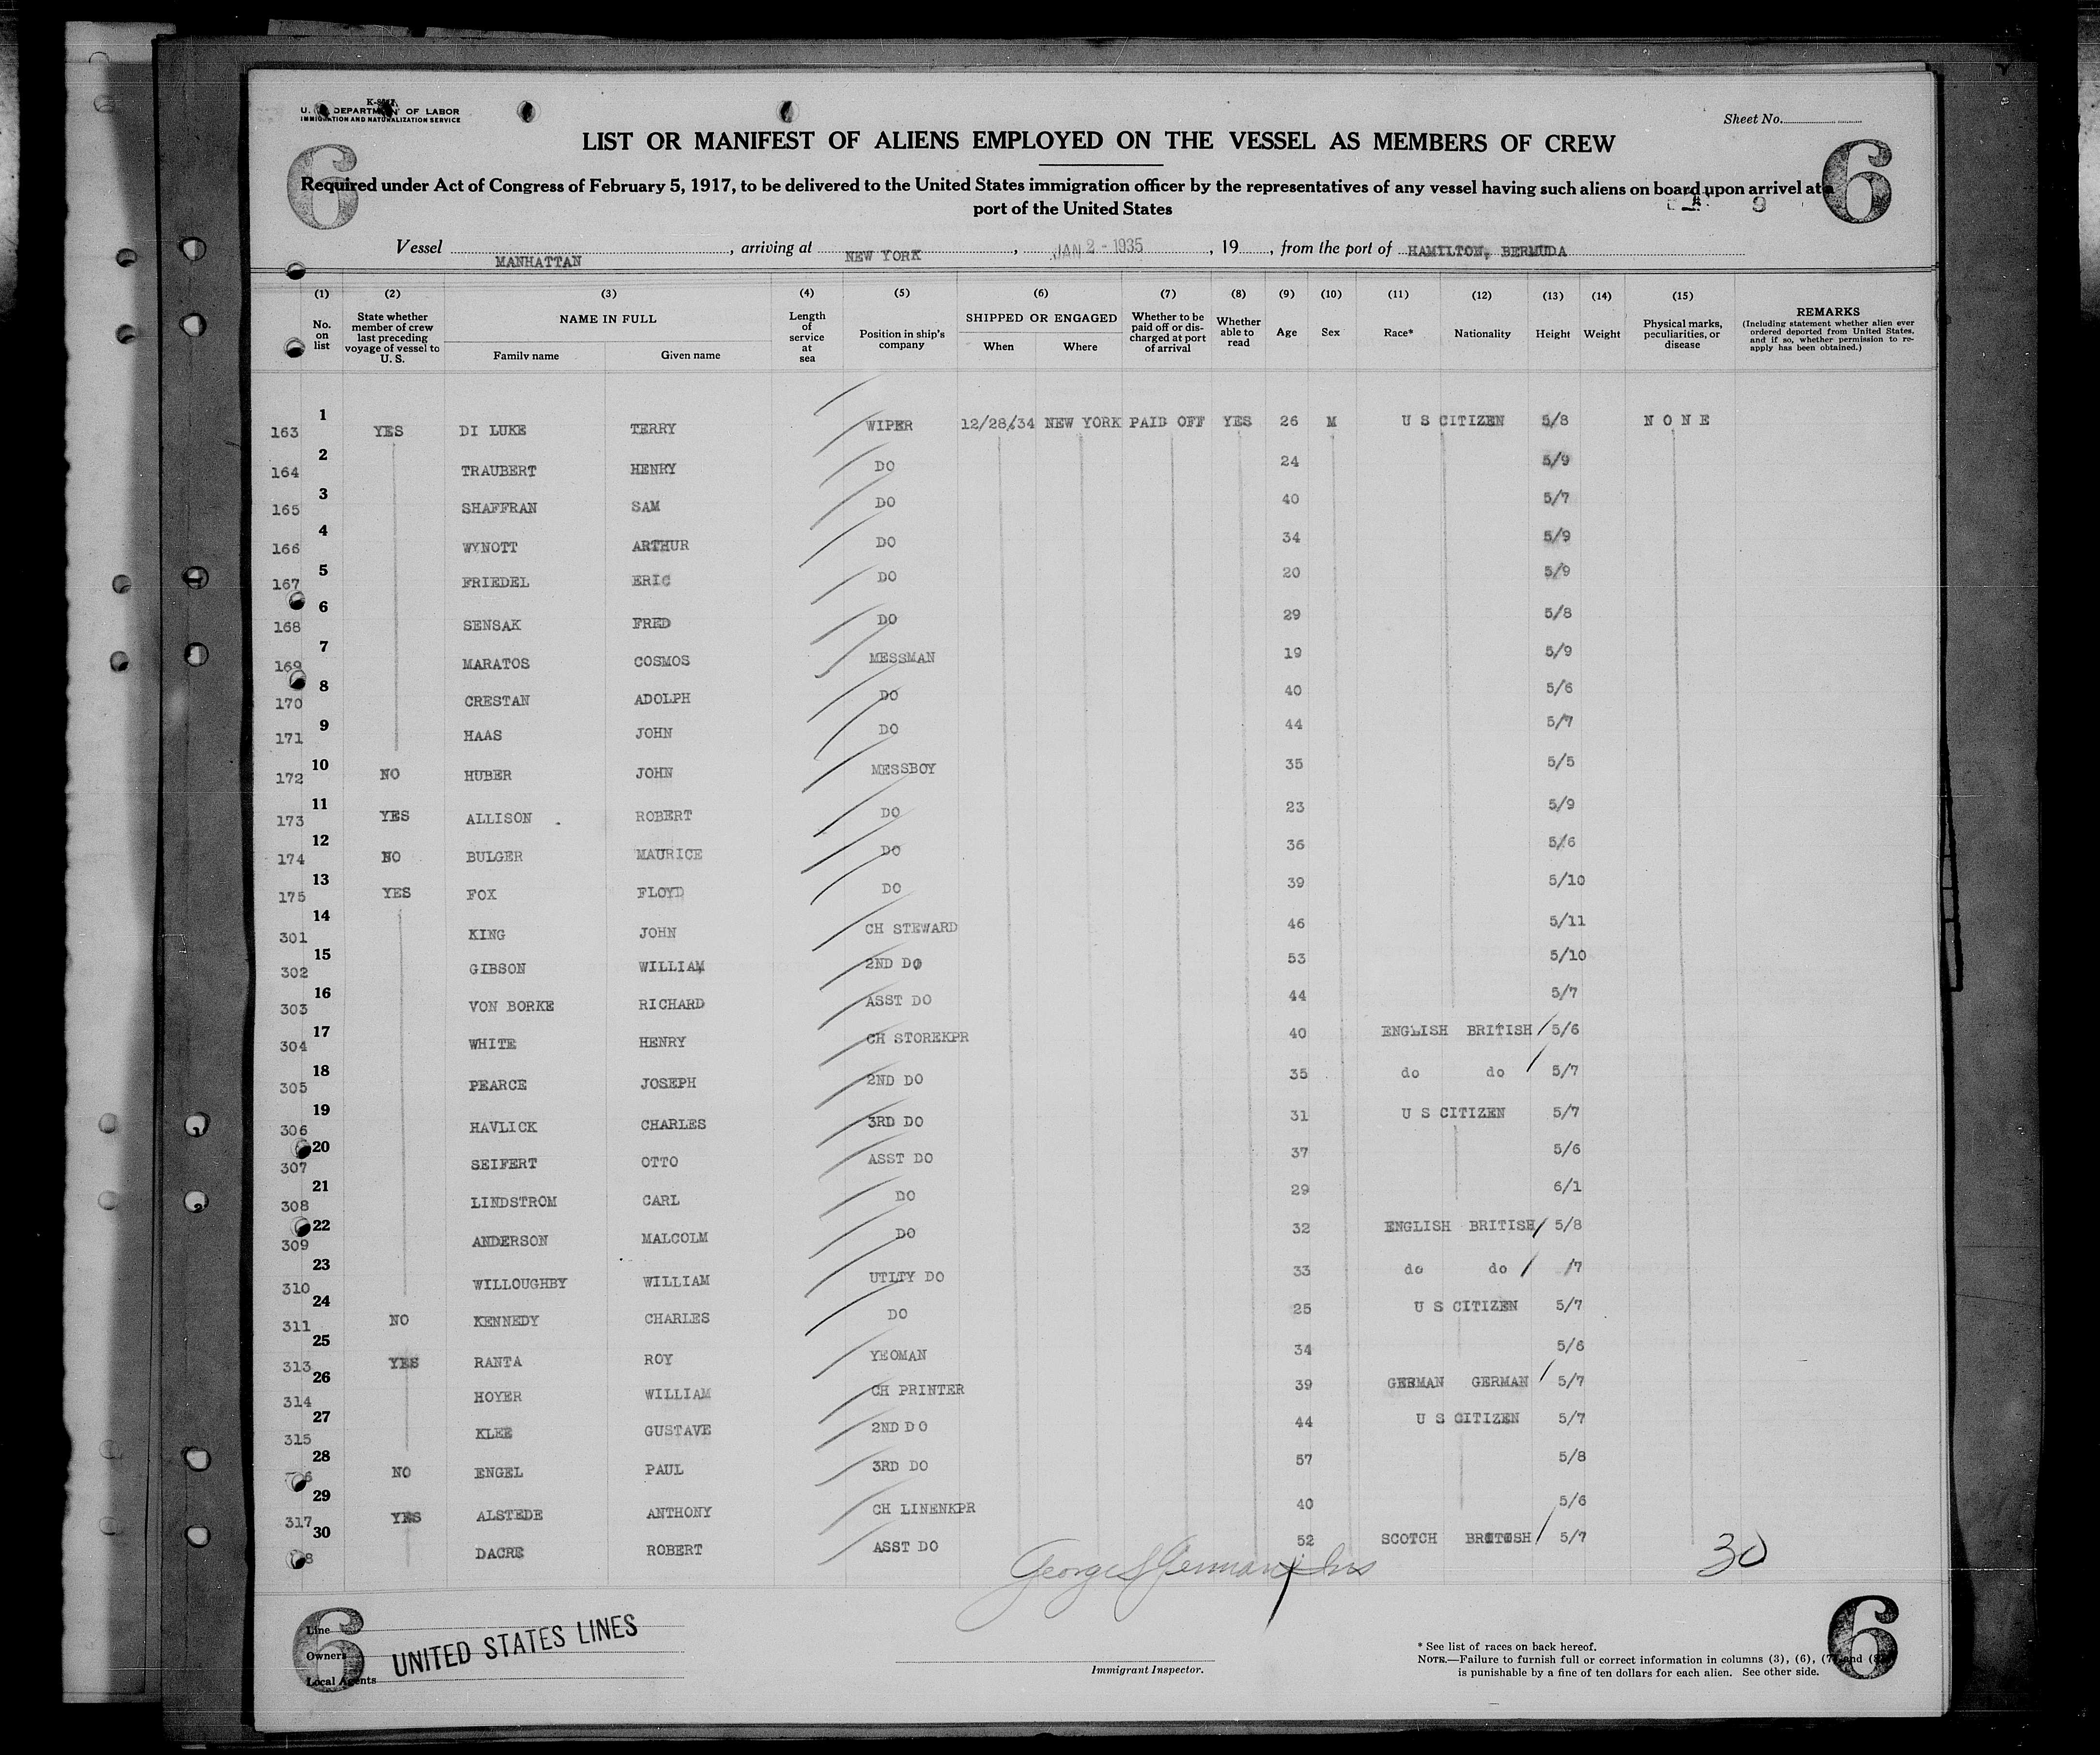 K-8
U. S. DEPARTMENT OF LABOR
IMMIGRATION AND NATURALIZATION SERVICE
Sheet No.
6 6
LIST OR MANIFEST OF ALIENS EMPLOYED ON THE VESSEL AS MEMBERS OF CREW
Required under Act of Congress of February 5, 1917, to be delivered to the United States immigration officer by the representatives of any vessel having such aliens on board upon arrivel at a
port of the United States
Vessel MANHATTAN, arriving at NEW YORK, JAN 2 - 1935, 19, from the port of HAMILTON, BERMUDA
(1) (2) (3) (4) (5) (6) (7) (8) (9) (10) (11) (12) (13) (14) (15)
No. on list State whether member of crew last preceding voyage of vessel to U. S. NAME IN FULL Family name Given name Length of service at sea Position in ship's company SHIPPED OR ENGAGED When Where Whether to be paid off or discharged at port of arrival Whether able to read Age Sex Race* Nationality Height Weight Physical marks, peculiarities, or disease REMARKS (Including statement whether alien ever ordered deported from United States, and if so, whether permission to re-apply has been obtained.)
163 1 YES DI LUKE TERRY WIPER 12/28/34 NEW YORK PAID OFF YES 26 M U S CITIZEN 5/8 N O N E
164 2 TRAUBERT HENRY DO 24 5/9
165 3 SHAFFRAN SAM DO 40 5/7
166 4 WYNOTT ARTHUR DO 34 5/9
167 5 FRIEDEL ERIC DO 20 5/9
168 6 SENSAK FRED DO 29 5/8
169 7 MARATOS COSMOS MESSMAN 19 5/9
170 8 CRESTAN ADOLPH DO 40 5/6
171 9 HAAS JOHN DO 44 5/7
172 10 NO HUBER JOHN MESSBOY 35 5/5
173 11 YES ALLISON ROBERT DO 23 5/9
174 12 NO BULGER MAURICE DO 36 5/6
175 13 YES FOX FLOYD DO 39 5/10
301 14 KING JOHN CH STEWARD 46 5/11
302 15 GIBSON WILLIAM 2ND DO 53 5/10
303 16 VON BORKE RICHARD ASST DO 44 5/7
304 17 WHITE HENRY CH STOREKPR 40 ENGLISH BRITISH 5/6
305 18 PEARCE JOSEPH 2ND DO 35 do do 5/7
306 19 HAVLICK CHARLES 3RD DO 31 U S CITIZEN 5/7
307 20 SEIFERT OTTO ASST DO 37 5/6
308 21 LINDSTROM CARL DO 29 6/1
309 22 ANDERSON MALCOLM DO 32 ENGLISH BRITISH 5/8
310 23 WILLOUGHBY WILLIAM UTLTY DO 33 do do /7
311 24 NO KENNEDY CHARLES DO 25 U S CITIZEN 5/7
313 25 YES RANTA ROY YEOMAN 34 5/6
314 26 HOYER WILLIAM CH PRINTER 39 GERMAN GERMAN 5/7
315 27 KLEE GUSTAVE 2ND DO 44 U S CITIZEN 5/7
28 NO ENGEL PAUL 3RD DO 57 5/8
317 29 YES ALSTEDE ANTHONY CH LINENKPR 40 5/6
30 DACRE ROBERT ASST DO 52 SCOTCH BRITISH 5/7
30
6 6
Line
Owners
Local Agents
UNITED STATES LINES
Immigrant Inspector.
* See list of races on back hereof.
NOTE.—Failure to furnish full or correct information in columns (3), (6), (7) and (8)
is punishable by a fine of ten dollars for each alien. See other side.